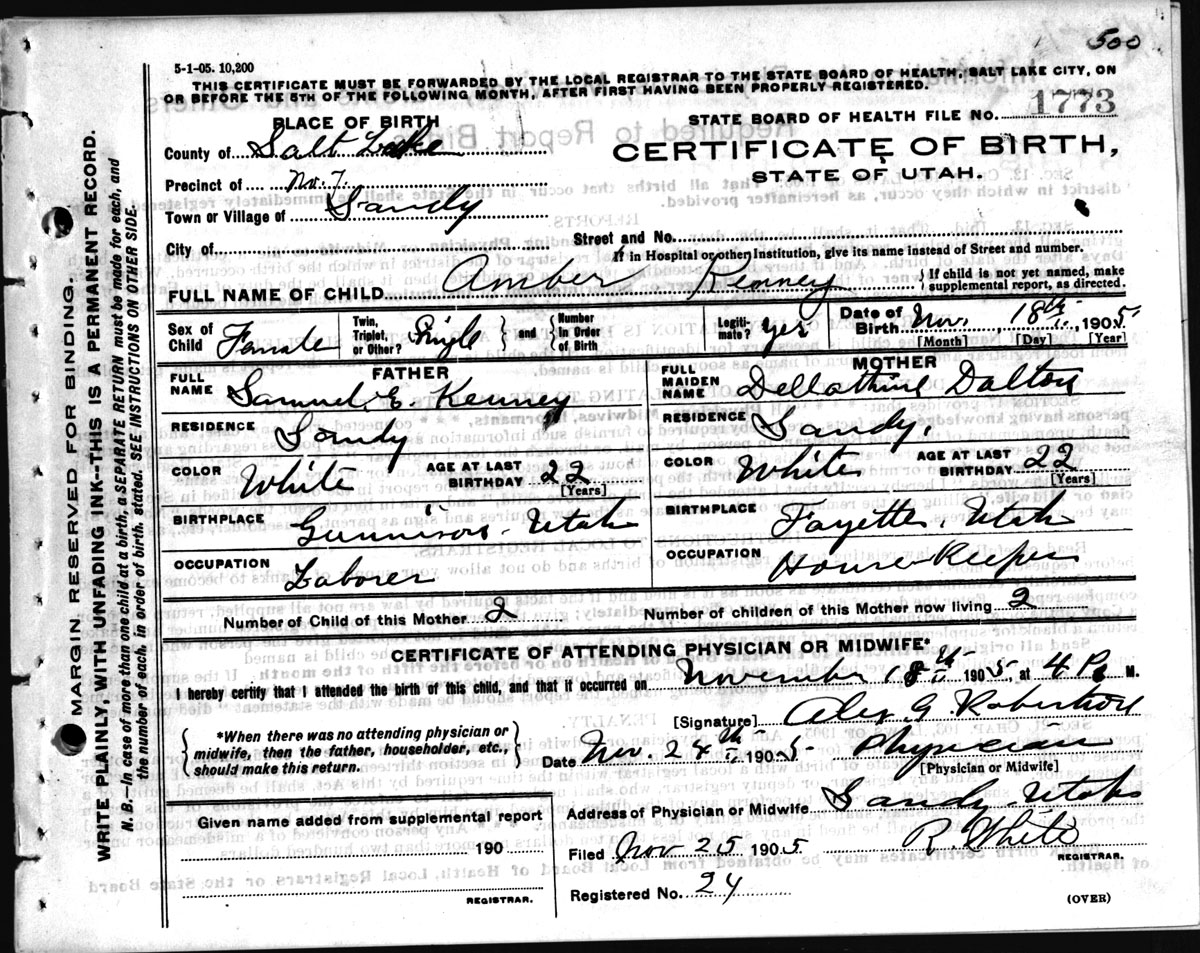 500
5-1-05. 10,200
THIS CERTIFICATE MUST BE FORWARDED BY THE LOCAL REGISTRAR TO THE STATE BOARD OF HEALTH, SALT LAKE CITY, ON
OR BEFORE THE 5TH OF THE FOLLOWING MONTH, AFTER FIRST HAVING BEEN PROPERLY REGISTERED.
PLACE OF BIRTH
STATE BOARD OF HEALTH FILE NO. 1773
County of Salt Lake
CERTIFICATE OF BIRTH,
STATE OF UTAH.
Precinct of No. 7
Town or Village of Sandy
City of
Street and No.
If in Hospital or other Institution, give its name instead of Street and number.
FULL NAME OF CHILD Amber Kenney { If child is not yet named, make supplemental report, as directed.
Sex of Child Female
Twin, Triplet, or Other? Single } and { Number In Order of Birth
Legiti-mate? yes
Date of Birth Nov. 18th, 1905
[Month] [Day] [Year]
FATHER
FULL NAME Samuel E. Kenney
RESIDENCE Sandy
COLOR White AGE AT LAST BIRTHDAY 22
[Years]
BIRTHPLACE Gunnison. Utah
OCCUPATION Laborer
MOTHER
FULL MAIDEN NAME Dellathine Dalton
RESIDENCE Sandy.
COLOR White AGE AT LAST BIRTHDAY 22
[Years]
BIRTHPLACE Fayette, Utah
OCCUPATION House Keeper
Number of Child of this Mother 2
Number of children of this Mother now living 2
CERTIFICATE OF ATTENDING PHYSICIAN OR MIDWIFE*
I hereby certify that I attended the birth of this child, and that it occurred on November 18th 1905, at 4 P. M.
{ *When there was no attending physician or midwife, then the father, householder, etc., should make this return. }
[Signature] Alex G. Robertson
Date Nov. 24th 1905 Physician
[Physician or Midwife]
Address of Physician or Midwife Sandy. Utah
Given name added from supplemental report
190
REGISTRAR.
Filed Nov 25 1905 R. White
REGISTRAR.
Registered No. 24
(OVER)
MARGIN RESERVED FOR BINDING.
WRITE PLAINLY, WITH UNFADING INK--THIS IS A PERMANENT RECORD.
N. B.—In case of more than one child at a birth, a SEPARATE RETURN must be made for each, and
the number of each, in order of birth, stated. SEE INSTRUCTIONS ON OTHER SIDE.